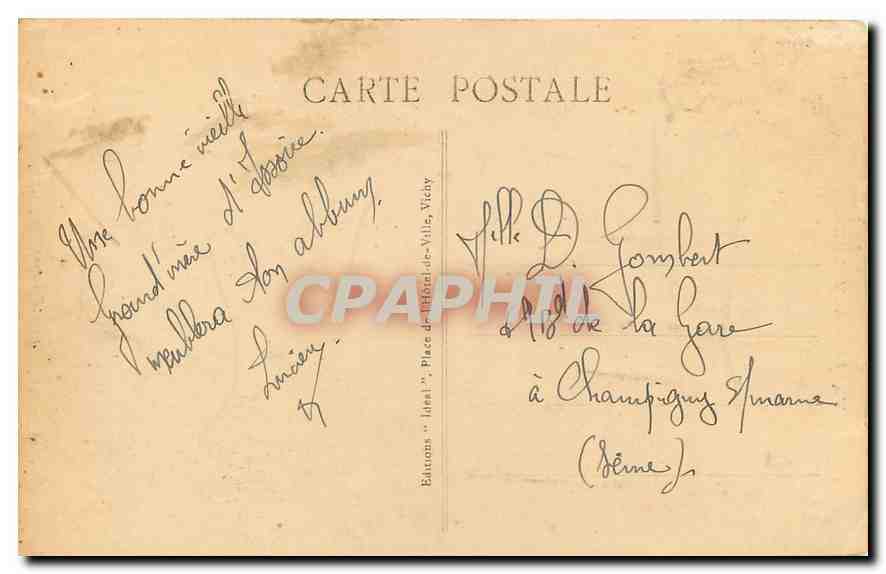 CARTE POSTALE
Une bonne vieille
Grand'mère d'Issoire
meublera ton album.
Lucien.
Editions "Ideal", Place de l'Hôtel-de-Ville, Vichy
Melle D. Gombert
Bd de la Gare
à Champigny s/marne
(Seine)
CPAPHIL